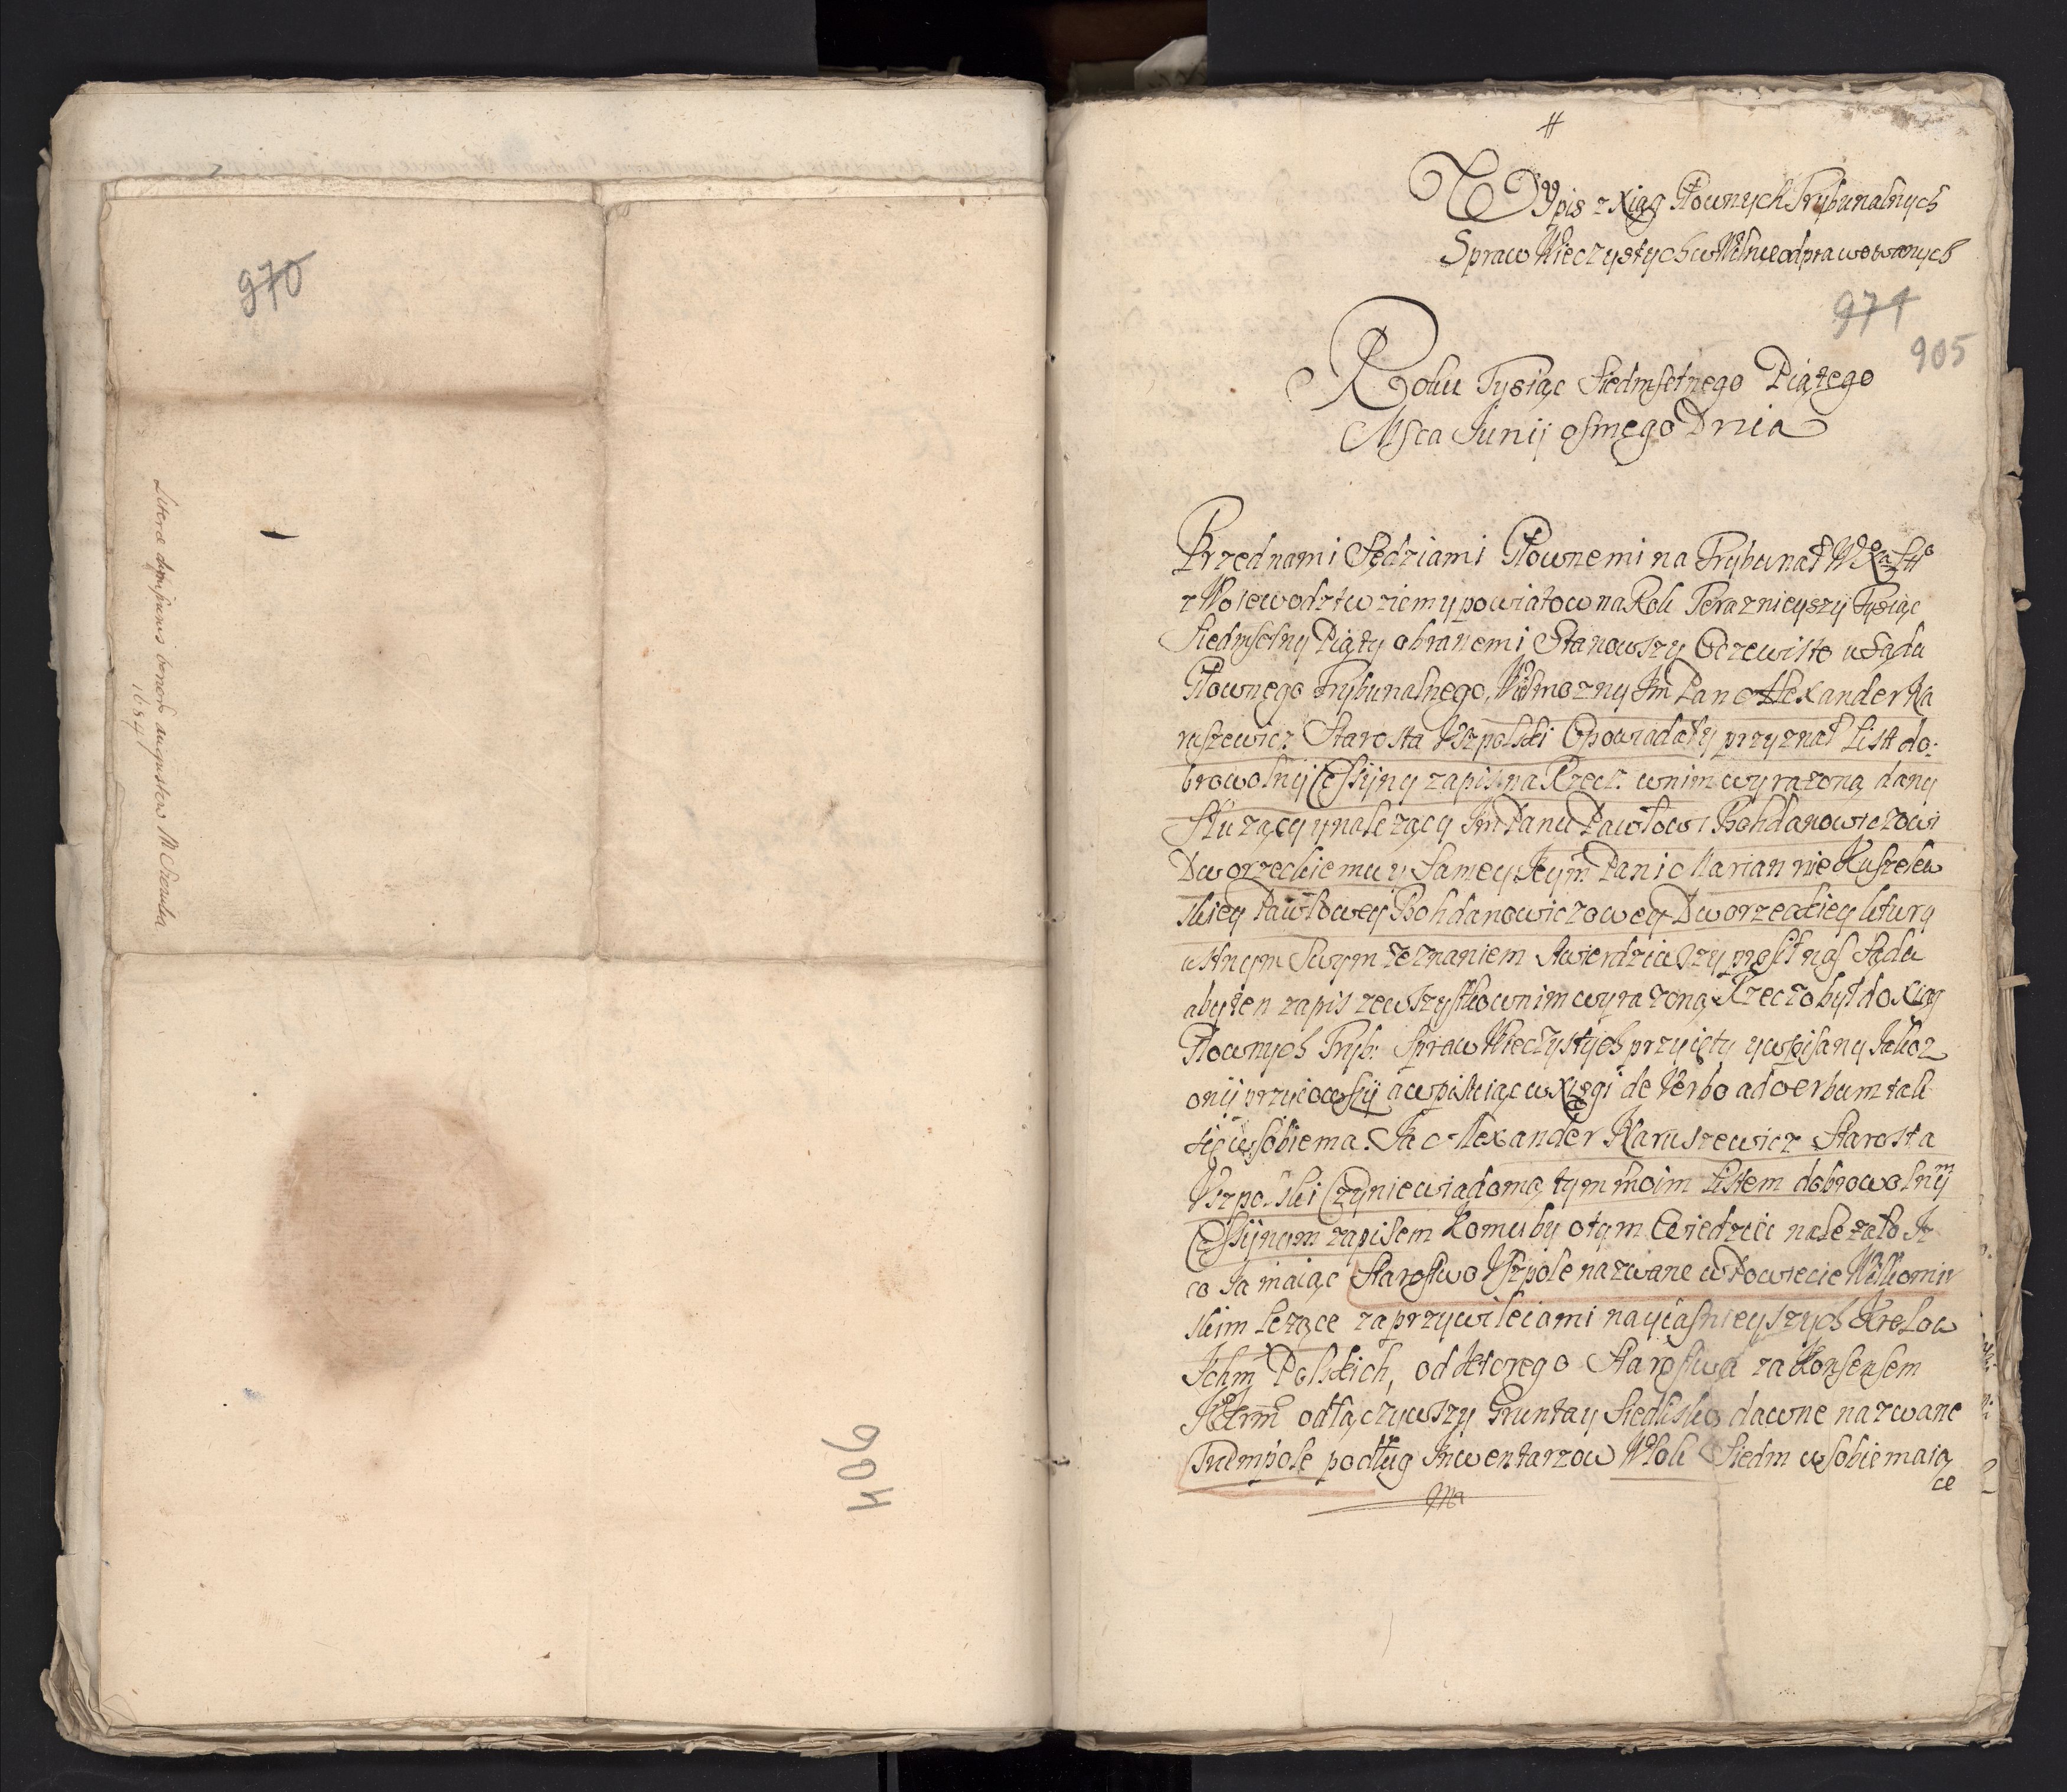 970
Literæ dimissionis bonorum
1684
904
#
Wypis z Xiąg Głownych Trybunalnych
Spraw Wieczystych w Wilnie odprawowanych
971
905
Roku Tysiąc Siedmsetnego Piątego
Msca Junij osmego Dnia
Przed nami Sędziami Głownemi na Trybunał W X Litt°
z Woiewodztw ziem y powiatow na Rok Teraznieyszy Tysiąc
Siedmsetny Piąty obranemi Stanowszy Oczewisto u Sądu
Głownego Trybunalnego, Wielmozny Jm Pan Alexander Ka
ruszewicz Starosta Uszpolski Opowiadał y przyznał List do:
browolny Cessyiny zapis na Rzecz w nim wyrazoną dany
Słuzący y nalezący Jm Panu Pawłowi Bohdanowiczowi
Dworzeckiemu y Samey Jeym Pani Mariannie Kuszelew
skiey Pawłowey Bohdanowiczowey Dworzeckiey ktury
ustnym Swym zeznaniem stwierdziwszy prosił nas Sądu
aby ten zapis ze wszystko w nim wyrazoną Rzeczo był do Xiąg
Głownych Tryb: Spraw Wieczystych przyięty y wpisany Jakoz
onij przyiowszy a wpisuiąc w Xięgi de Verbo ad verbum tak
się w sobie ma. Ja Alexander Karuszewicz Starosta
Uszpolski Czynie wiadomo tym moim Listem dobrowolnym
Cessyinym zapisem Komu by o tym Wiedzieć nalezało Iz
co Ja maiąc Starostwo Uszpole nazwane w Powiecie Wilkomir
skim Lezące za przywileiami nayiasnieyszych Krolow
Ichm Polskich, od ktorego Starostwa za Konsensem
JKrm odłączywszy Grunta y Siedlisko dawne nazwane
Trumpole podług Inwentarzow Włok Siedm w sobie maią
ce